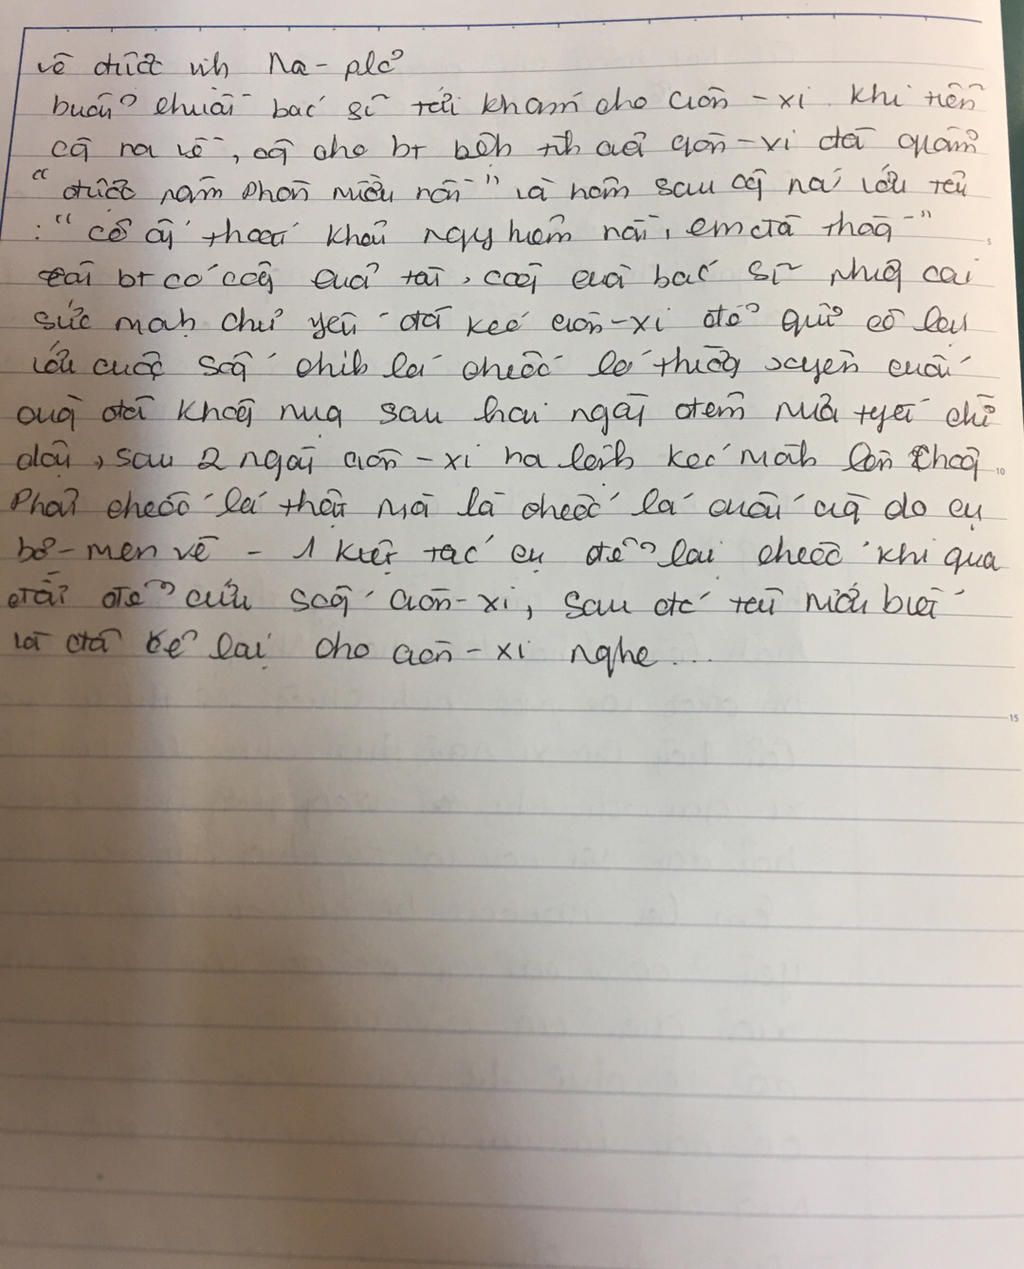 vẽ được vịnh Na-plơ
buổi chiều bác sĩ tới khám cho Giôn-xi. khi tiễn
cụ ra về, cụ cho bt bệnh tình của giôn-xi đã
"được năm phần mười rồi" và hôm sau cụ nói với
: "cô ấy thoát khỏi nguy hiểm rồi, em đã thắng"
bt có công của tài, công của bác sĩ nhưng cái
sức mạnh chủ yếu đã kéo Giôn-xi để cô lại
với cuộc sống chính là chiếc lá thường xuyên cuối
cùng đã không rụng sau hai ngày đêm mưa tuyết
sau 2 ngày Giôn-xi ra lệnh kéo mành lên không
phải chiếc lá thật mà là chiếc lá cuối cùng do cụ
bơ-men vẽ - 1 kiệt tác cụ để lại chiếc khi qua
để cứu sống Giôn-xi, sau đó mới biết
và đã kể lại cho Giôn-xi nghe...
5
10
15